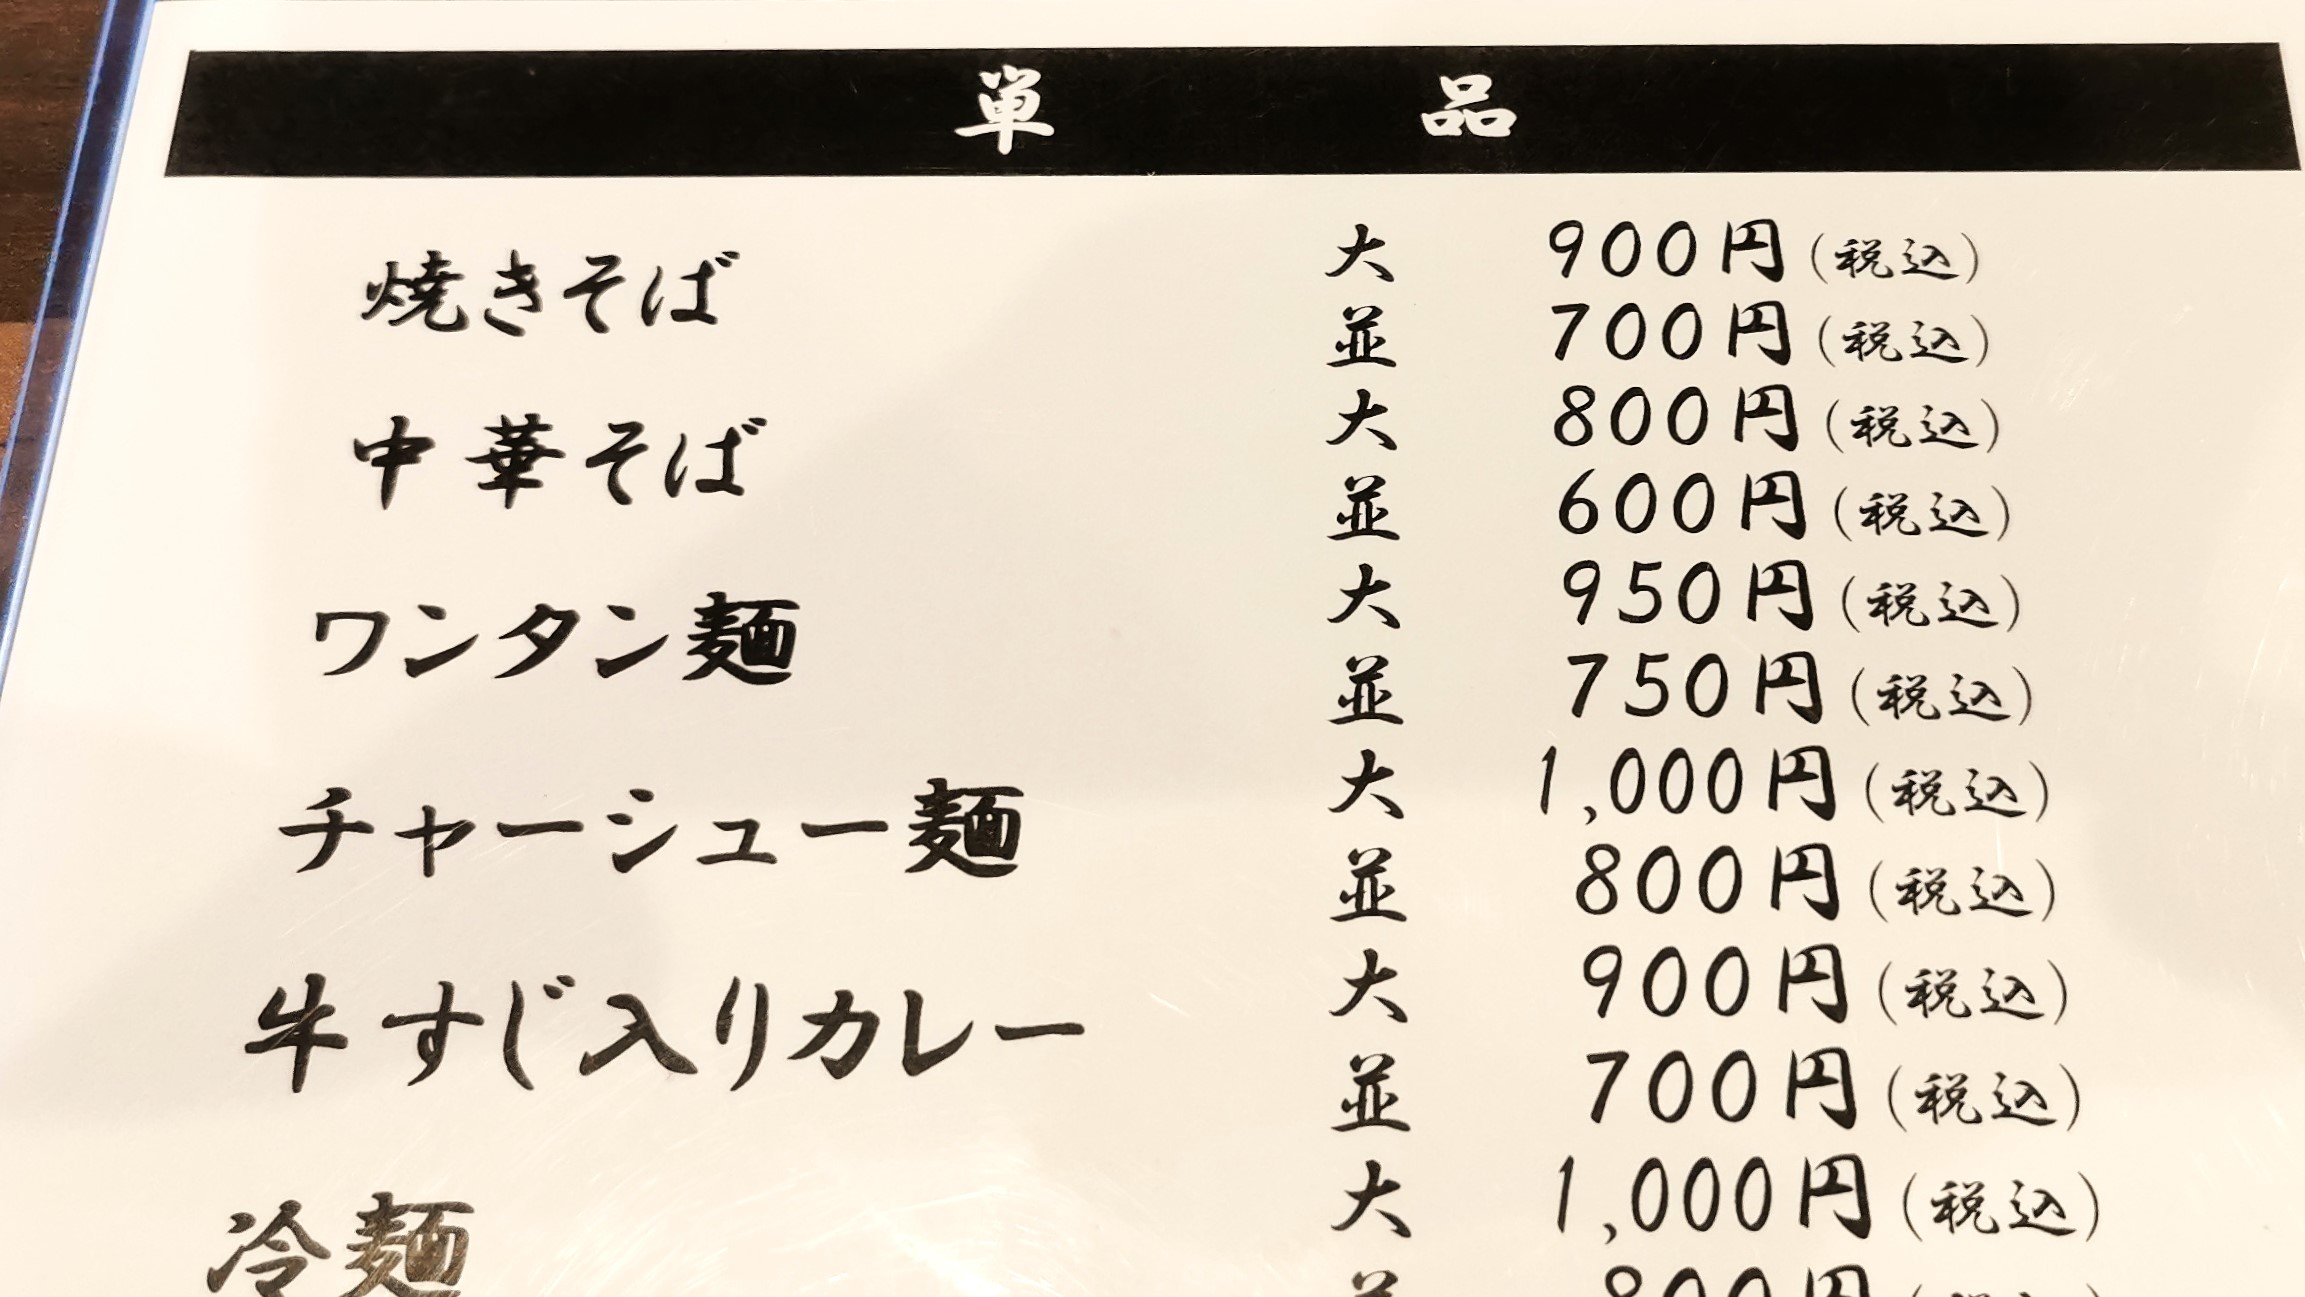 単品
焼きそば 大 900円(税込)
並 700円(税込)
中華そば 大 800円(税込)
並 600円(税込)
ワンタン麺 大 950円(税込)
並 750円(税込)
チャーシュー麺 大 1,000円(税込)
並 800円(税込)
牛すじ入りカレー 大 900円(税込)
並 700円(税込)
冷麺 大 1,000円(税込)
並